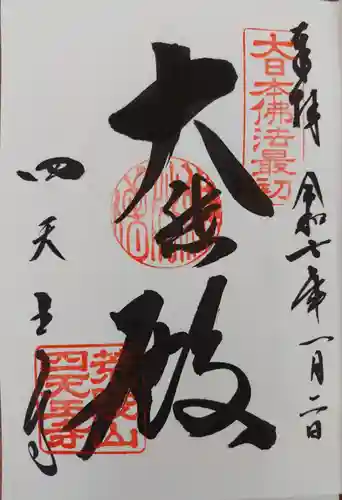 奉拝
令和七年一月二日
大日本佛法最初
大悲殿
四天王寺
荒陵山
四天王寺